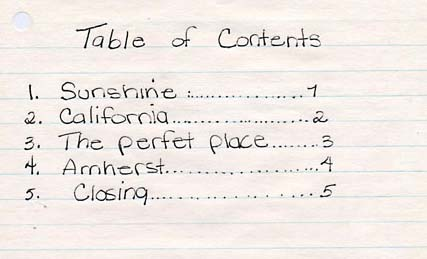 Table of Contents
1. Sunshine :................1
2. California....................2
3. The perfet place.......3
4. Amherst.....................4
5. Closing......................5